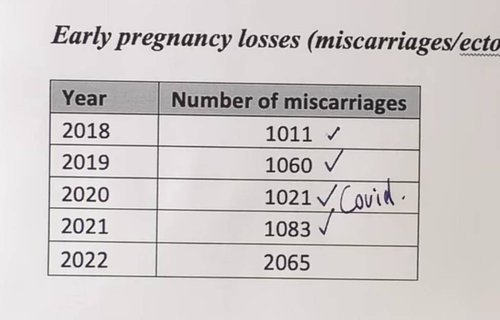 Early pregnancy losses (miscarriages/ecto
Year Number of miscarriages
2018 1011 ✓
2019 1060 ✓
2020 1021 ✓ Covid.
2021 1083 ✓
2022 2065